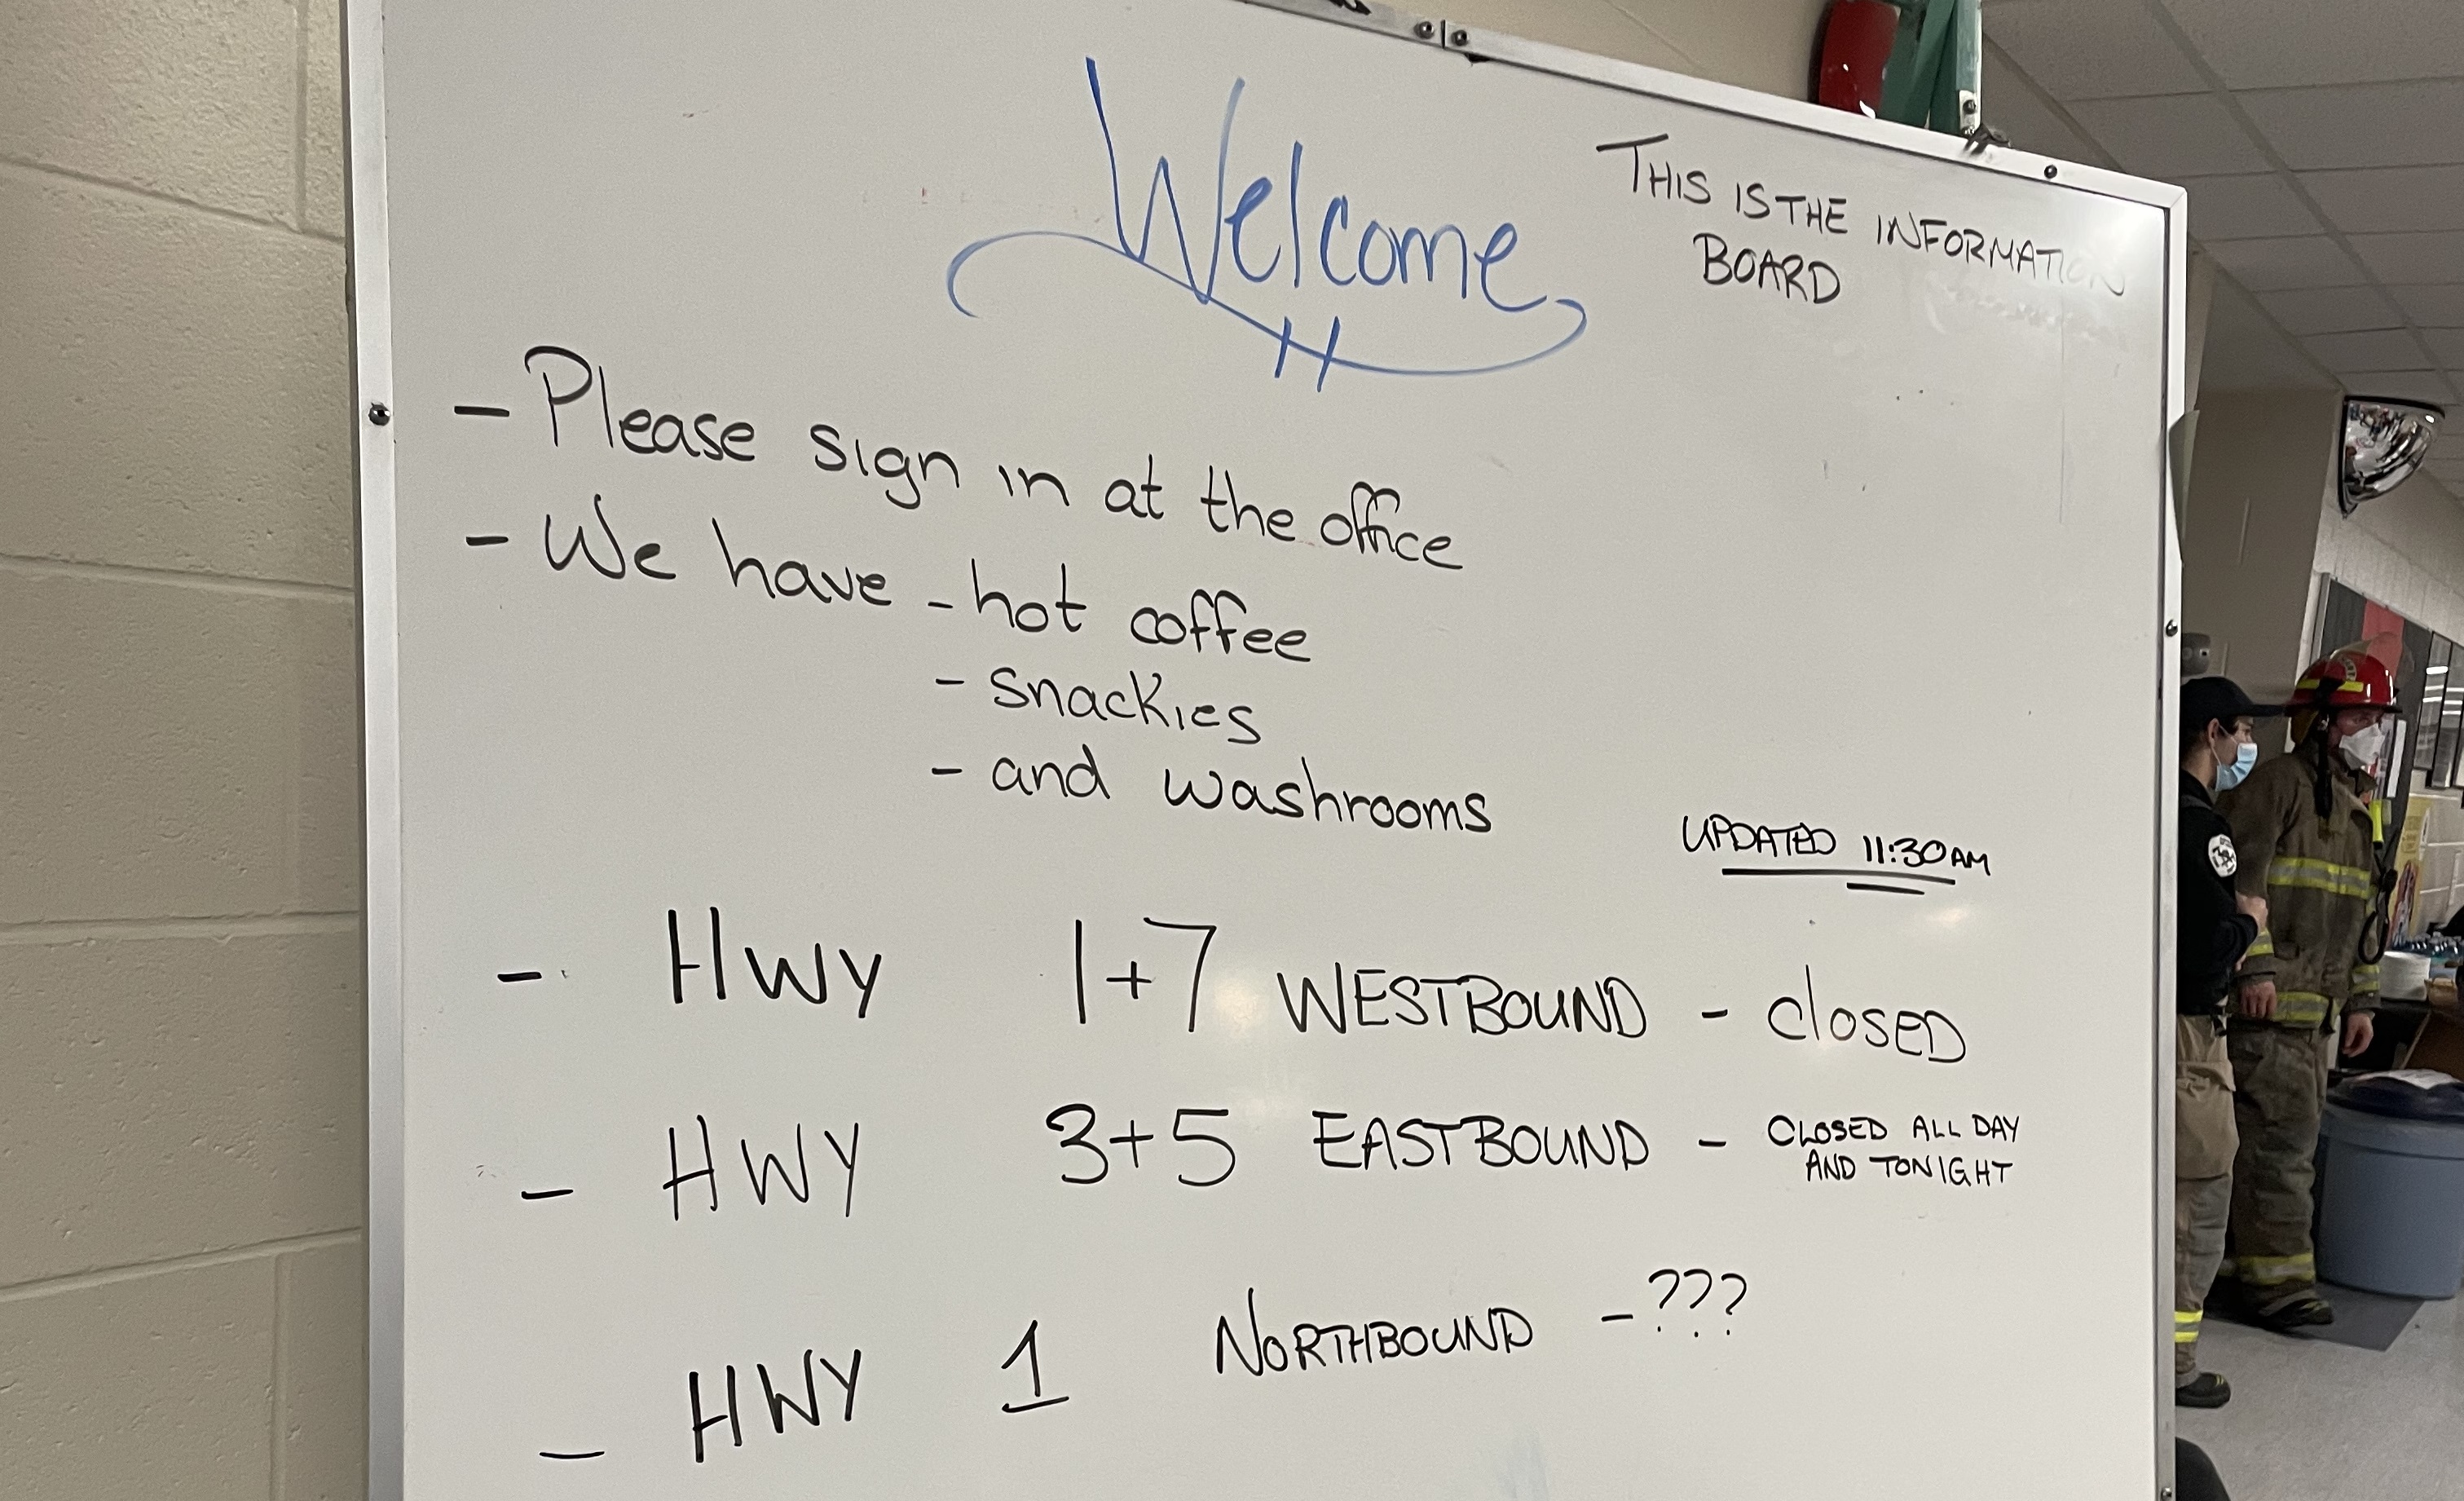 Welcome
THIS IS THE INFORMATION
BOARD
- Please sign in at the office
- We have - hot coffee
- snackies
- and washrooms
UPDATED 11:30AM
- HWY 1+7 WESTBOUND - closed
- HWY 3+5 EASTBOUND - CLOSED ALL DAY
AND TONIGHT
- HWY 1 NORTHBOUND - ???